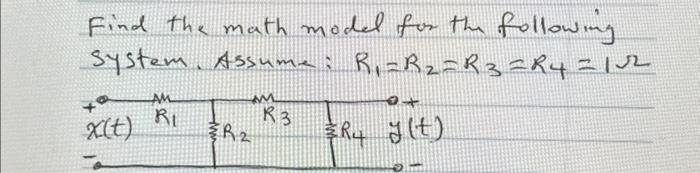 Find the math model for the following
System. Assume: R1=R2=R3=R4=1Ω
+ R1 R3 +
x(t) R2 R4 y(t)
- -